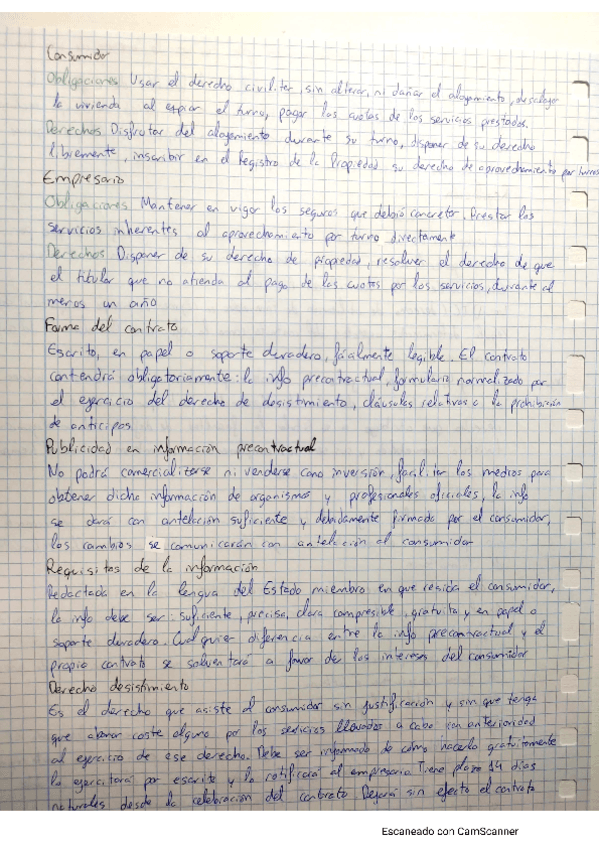 Consumidor
Obligaciones Usar el derecho civiliter, sin alterar, ni dañar el alojamiento, desalojar
la vivienda al expirar el turno, pagar las cuotas de los servicios prestados.
Derechos Disfrutar del alojamiento durante su turno, disponer de su derecho
libremente, inscribir en el Registro de la Propiedad su derecho de aprovechamiento por turnos
Empresario
Obligaciones Mantener en vigor los seguros que debió concretar. Prestar los
servicios inherentes al aprovechamiento por turno directamente
Derechos Disponer de su derecho de propiedad, resolver el derecho de que
el titular que no atienda al pago de las cuotas por los servicios, durante al
menos un año
Forma del contrato
Escrito, en papel o soporte duradero, fácilmente legible. El contrato
contendrá obligatoriamente: la info precontractual, formulario normalizado por
el ejercicio del derecho de desistimiento, cláusulas relativas a la prohibición
de anticipos
Publicidad en información precontractual
No podrá comercializarse ni venderse como inversión, facilitar los medios para
obtener dicha información de organismos y profesionales oficiales, la info
se dará con antelación suficiente y debidamente firmado por el consumidor,
los cambios se comunicarán con antelación al consumidor
Requisitos de la información
Redactada en la lengua del Estado miembro en que resida el consumidor,
la info debe ser: suficiente, precisa, clara compresible, gratuita y en papel o
soporte duradero. Cualquier diferencia entre la info precontractual y el
propio contrato se solventará a favor de los intereses del consumidor
Derecho desistimiento
Es el derecho que asiste al consumidor sin justificación y sin que tenga
que abonar coste alguno por los servicios llevados a cabo con anterioridad
al ejercicio de ese derecho. Debe ser informado de cómo hacerlo gratuitamente
lo ejercitará por escrito y lo notificará al empresario. Tiene plazo 14 días
naturales desde la celebración del contrato Dejará sin efecto el contrato
Escaneado con CamScanner